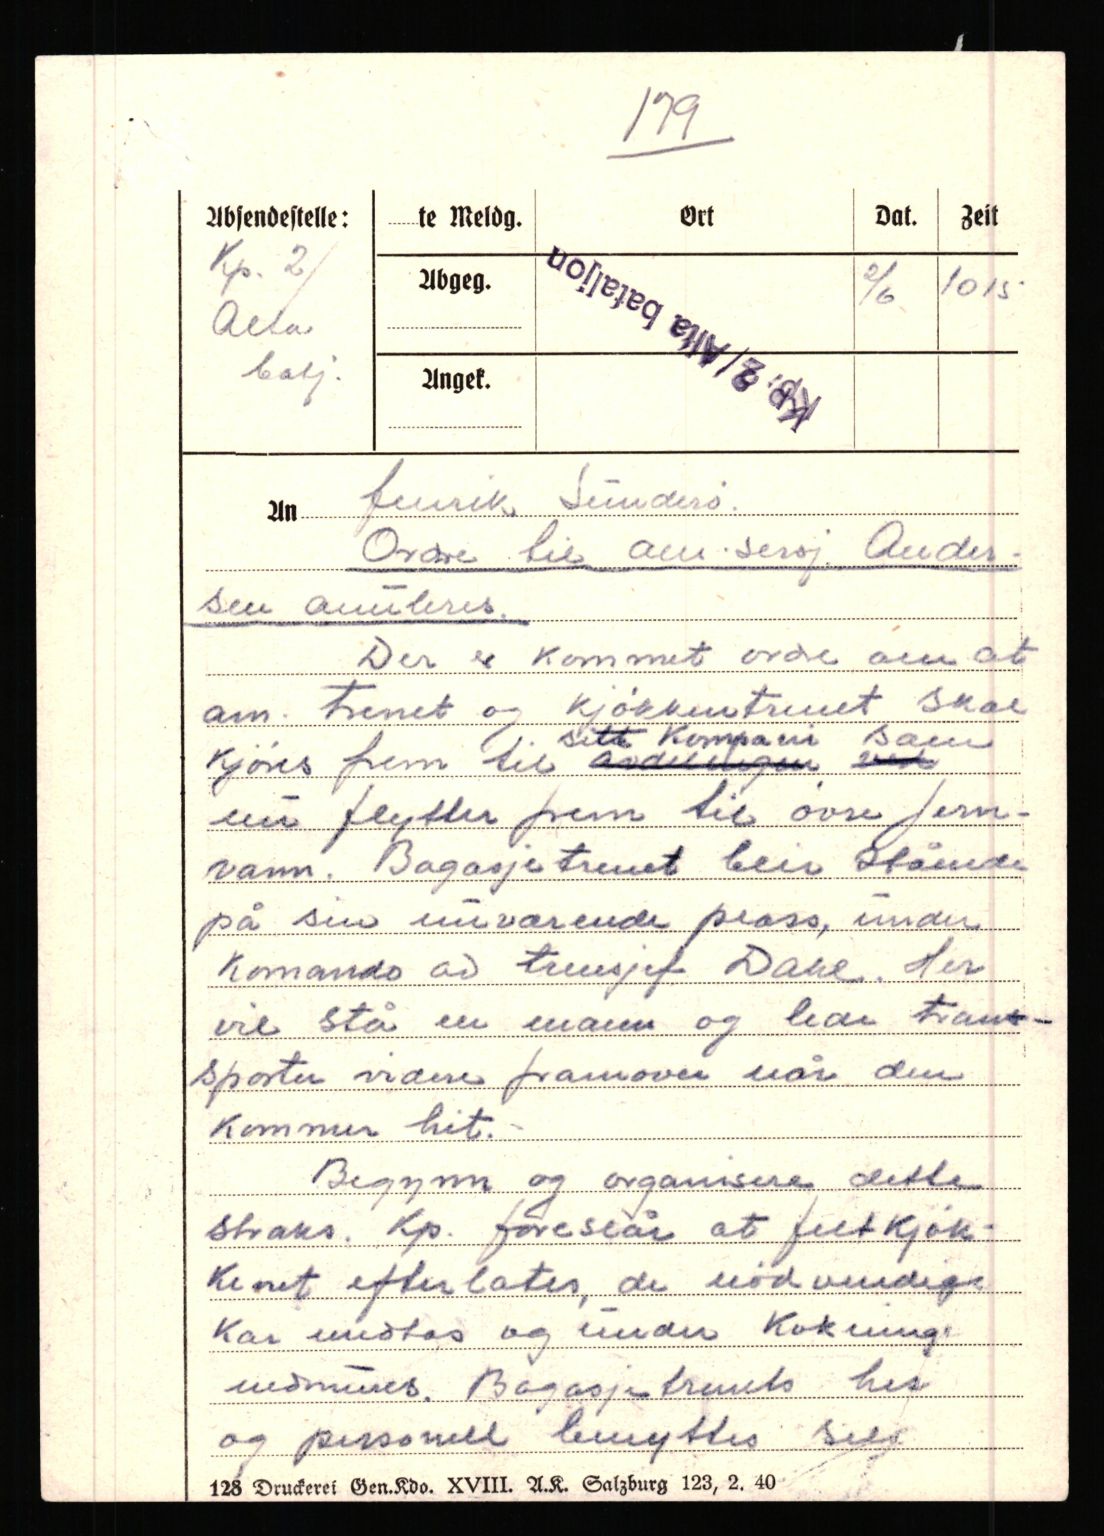 179
Absendestelle: te Meldg. Ort Dat. Zeit
Kp. 2/
Alta
batj.
Abgeg. 2/6 1015
Kp. 2/Alta bataljon
Angek.
An fenrik Sundersö.
Ordre til am. sersj. Ander-
sen anuleres.
Der er kommet ordre om at
am. trenet og kjøkkentrenet skal
sitt Kompani som
kjøres frem til avdelingen ved
nu flytter frem til øvre Jern-
vann. Bagasjetrenet blir stående
på sin nuværende plass, under
Komando av trensjef Dahl. Her
vil stå en mann og lede tran-
sporten videre framover når den
kommer hit.-
Begynn og organisere dette
straks. Kp. foreslår at feltkjøk-
kenet efterlates, de nødvendige
kar medtas og under Kokning
nedmures. Bagasjetrenets hes
og personell benyttes selv
128 Druckerei Gen.Kdo. XVIII. A.K. Salzburg 123, 2. 40